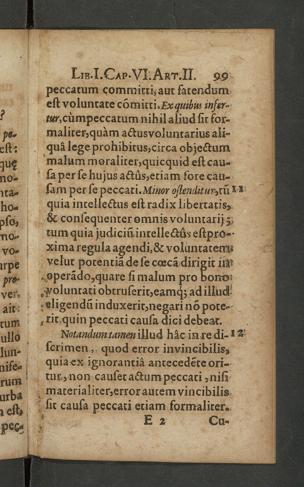 LIB. I. CAP. VI. ART. II. 99
peccatum committi, aut fatendum
est voluntate cōmitti. Ex quibus infer-
tur, cùm peccatum nihil aliud sit for-
maliter, quàm actus voluntarius ali-
quâ lege prohibitus, circa objectum
malum moraliter, quicquid est cau-
sa per se hujus actûs, etiam fore cau-
sam per se peccati. Minor ostenditur, tū 11
quia intellectus est radix libertatis,
& consequenter omnis voluntarij;
tum quia judiciū intellectûs est pro-
xima regula agendi, & voluntatem
velut potentiā de se cœcā dirigit in
operādo, quare si malum pro bono
voluntati obtruserit, eamq; ad illud
eligendū induxerit, negari nō pote-
rit quin peccati causa dici debeat.
Notandum tamen illud hâc in re di- 12
scrimen, quod error invincibilis,
quia ex ignorantiâ antecedēte ori-
tur, non causet actum peccati, nisi
materialiter, error autem vincibilis
sit causa peccati etiam formaliter.
E 2 Cu-
?
pe-
est:
quę
no-
nta-
ho-
pso,
mo-
vo-
urpe
pro-
ver.
ait:
tum
ullo
lun-
nise-
rum
urba
n est,
pec-